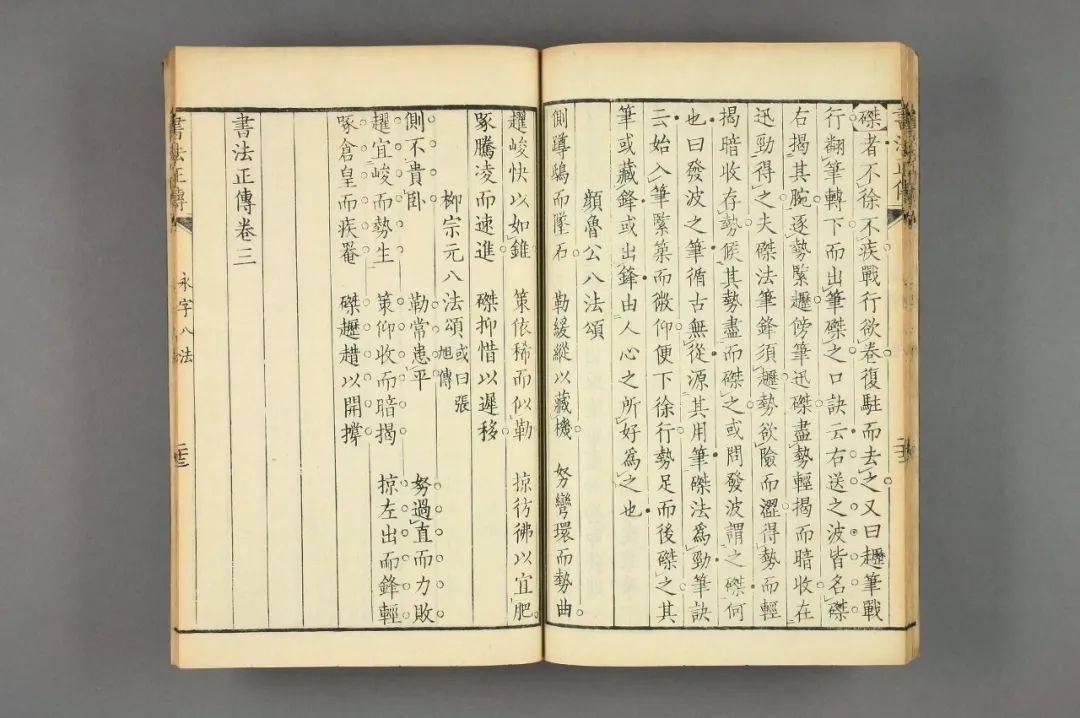 磔者不徐不疾戰行欲卷復駐而去之又曰趯筆戰
行翻筆轉下而出筆磔之口訣云右送之波皆名磔
右揭其腕逐勢緊趯傍筆迅磔盡勢輕揭而暗收在
迅勁得之夫磔法筆鋒須趯勢欲險而澀得勢而輕
揭暗收存勢候其勢盡而磔之或問發波謂之磔何
也曰發波之筆循古無從源其用筆磔法為勁筆訣
云始入筆緊築而微仰便下徐行勢足而後磔之其
筆或藏鋒或出鋒由人心之所好為之也
顏魯公八法頌
側蹲鴟而墜石 勒緩縱以藏機 努彎環而勢曲
趯峻快以如錐 策依稀而似勒 掠彷彿以宜肥
啄騰凌而速進 磔抑惜以遲移
柳宗元八法頌 或曰張旭傳
側不貴臥 勒常患平 努過直而力敗
趯宜峻而勢生 策仰收而暗揭 掠左出而鋒輕
啄倉皇而疾罨 磔趯趞以開撐
書法正傳卷三
書法正傳
永字八法
二十三